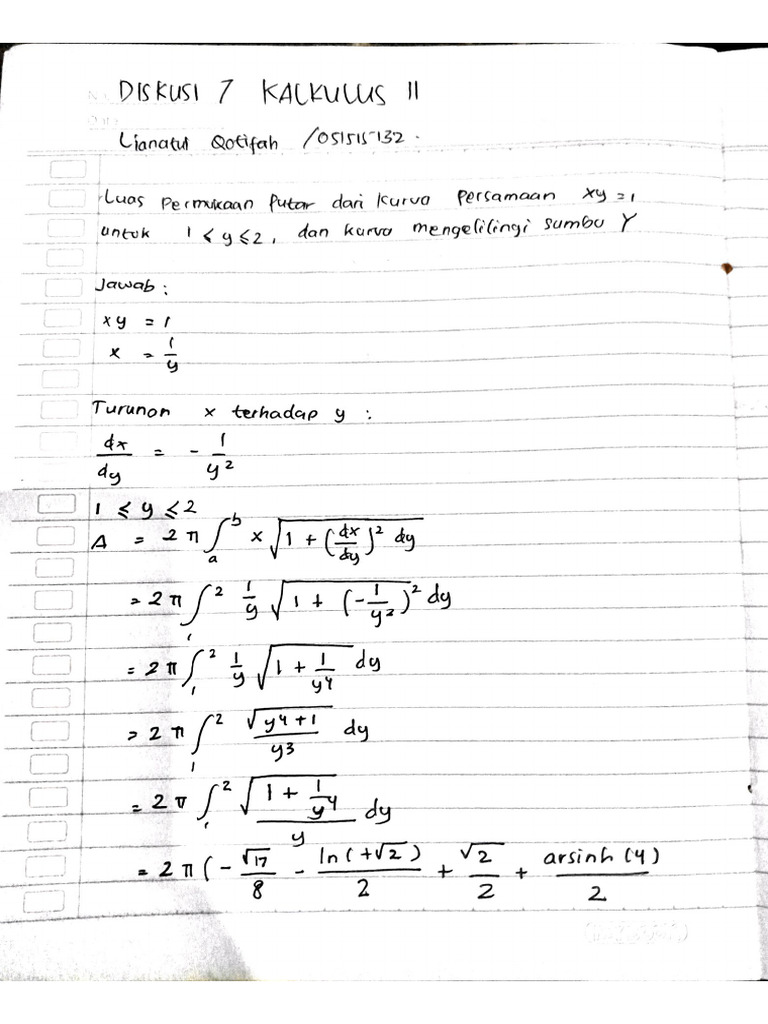 DISKUSI 7 KALKULUS II
Lianatul Qotifah /051515132.
Luas Permukaan Putar dari Kurva Persamaan xy = 1
untuk 1 ≤ y ≤ 2, dan kurva mengelilingi sumbu Y
Jawab :
xy = 1
x = 1/y
Turunan x terhadap y :
dx/dy = - 1/y²
1 ≤ y ≤ 2
A = 2 π ∫_a^b x √(1 + (dx/dy)² dy)
= 2 π ∫_1^2 1/y √(1 + (-1/y²)²) dy
= 2 π ∫_1^2 1/y √(1 + 1/y⁴) dy
= 2 π ∫_1^2 √(y⁴+1)/y³ dy
= 2 π ∫_1^2 √(1 + 1/y⁴)/y dy
= 2 π (- √17/8 - ln(+√2)/2 + √2/2 + arsinh(4)/2